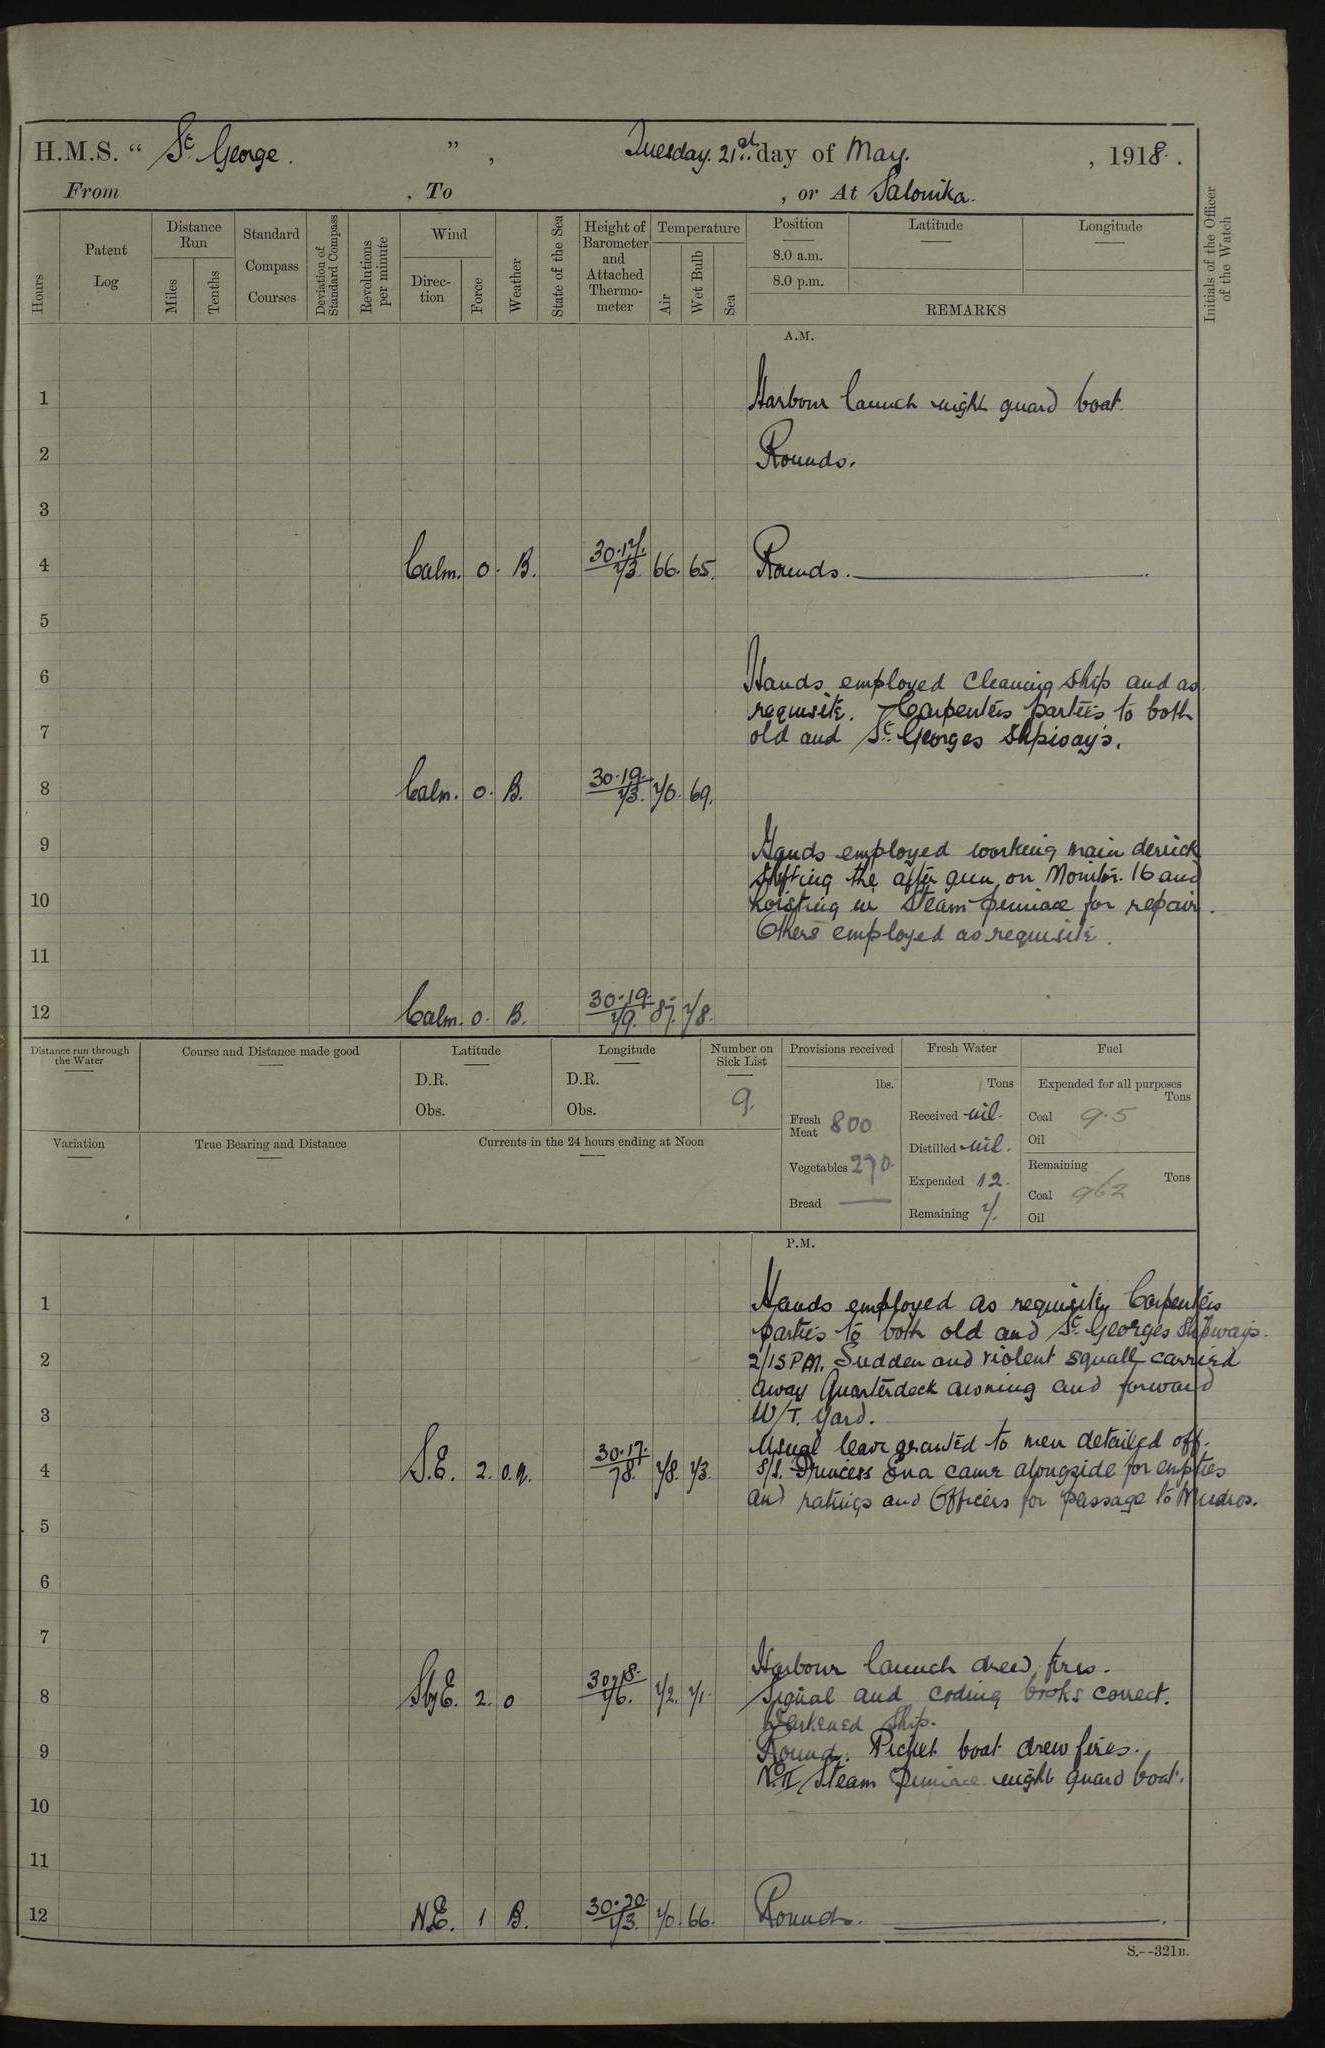 H.M.S. " St. George. ", Tuesday. 21st. day of May. , 1918.
From , To , or At Salonika.
Hours
Patent Log
Distance Run
Miles
Tenths
Standard Compass Courses
Deviation of Standard Compass
Revolutions per minute
Wind
Direction
Force
Weather
State of the Sea
Height of Barometer and Attached Thermometer
Temperature
Air
Wet Bulb
Sea
Position
8.0 a.m.
8.0 p.m.
Latitude
Longitude
REMARKS
Initials of the Officer of the Watch
A.M.
1 Harbour launch night guard boat.
2 Rounds.
3
4 Calm. 0. B. 30.17. 73. 66. 65. Rounds.
5
6 Hands employed cleaning ship and as
requisite. Carpenters parties to both
7 old and St. Georges shpway's.
8 Calm. 0. B. 30.19. 73. 70. 69.
9 Hands employed working main derrick
shifting the after gun on Monitor. 16 and
10 hoisting in steam pinnace for repair.
Others employed as requisite.
11
12 Calm. 0. B. 30.19. 79. 87. 78.
Distance run through the Water
Course and Distance made good
Latitude
D.R.
Obs.
Longitude
D.R.
Obs.
Number on Sick List
9.
Provisions received
lbs.
Fresh Meat 800
Vegetables 290
Bread —
Fresh Water
Tons
Received nil.
Distilled nil.
Expended 12.
Remaining 7.
Fuel
Expended for all purposes
Tons
Coal 9.5
Oil
Remaining
Tons
Coal 962
Oil
Variation
True Bearing and Distance
Currents in the 24 hours ending at Noon
P.M.
1 Hands employed as requisite, Carpenters
parties to both old and St. Georges Slipways.
2 2/15 P.M. Sudden and violent squall carried
away Quarterdeck awning and forward
3 W/T. yard.
Usual leave granted to men detailed off.
4 S.E. 2. o.q. 30.17. 78. 78. 73. S/S. Princess Ena came alongside for empties
and ratings and Officers for passage to Mudros.
5
6
7 Harbour launch drew fires.
8 SbyE. 2. 0 30.18. 76. 72. 71. Signal and coding books correct.
Darkened ship.
9 Round. Picket boat drew fires.
No. II Steam pinnace night guard boat.
10
11
12 N.E. 1 B. 30.20. 73. 70. 66. Rounds.
S.--321B.